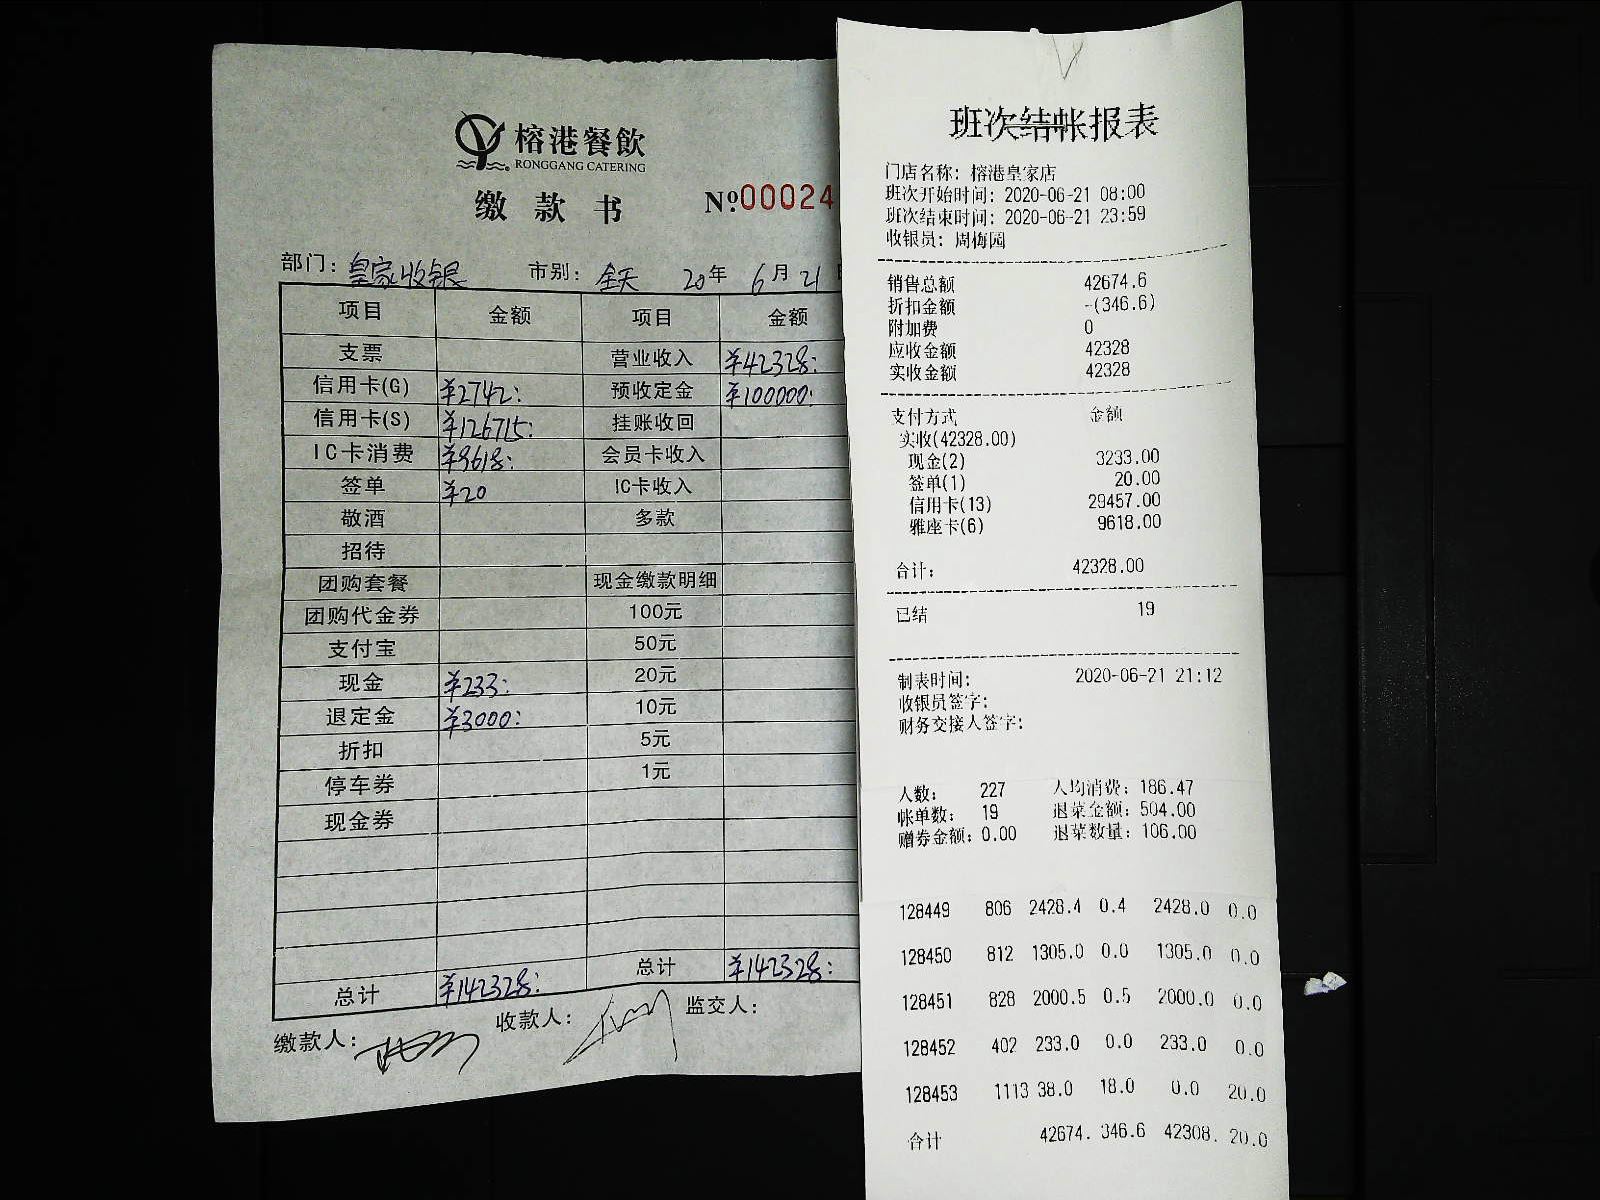 榕港餐飲
RONGGANG CATERING
缴款书 Nº00024
部门: 皇家收银 市别: 全天 20年 6月 21日
项目 金额 项目 金额
支票 营业收入 ¥42328:
信用卡(G) ¥2742: 预收定金 ¥100000:
信用卡(S) ¥126715: 挂账收回
IC卡消费 ¥9618: 会员卡收入
签单 ¥20 IC卡收入
敬酒 多款
招待
团购套餐 现金缴款明细
团购代金券 100元
支付宝 50元
现金 ¥233: 20元
退定金 ¥3000: 10元
折扣 5元
停车券 1元
现金券
总计 ¥142328: 总计 ¥142328:
缴款人: 收款人: 监交人:
班次结帐报表
门店名称: 榕港皇家店
班次开始时间: 2020-06-21 08:00
班次结束时间: 2020-06-21 23:59
收银员: 周梅园
销售总额 42674.6
折扣金额 -(346.6)
附加费 0
应收金额 42328
实收金额 42328
支付方式 金额
实收(42328.00)
现金(2) 3233.00
签单(1) 20.00
信用卡(13) 29457.00
雅座卡(6) 9618.00
合计: 42328.00
已结 19
制表时间: 2020-06-21 21:12
收银员签字:
财务交接人签字:
人数: 227 人均消费: 186.47
帐单数: 19 退菜金额: 504.00
赠券金额: 0.00 退菜数量: 106.00
128449 806 2428.4 0.4 2428.0 0.0
128450 812 1305.0 0.0 1305.0 0.0
128451 828 2000.5 0.5 2000.0 0.0
128452 402 233.0 0.0 233.0 0.0
128453 1113 38.0 18.0 0.0 20.0
合计 42674. 346.6 42308. 20.0